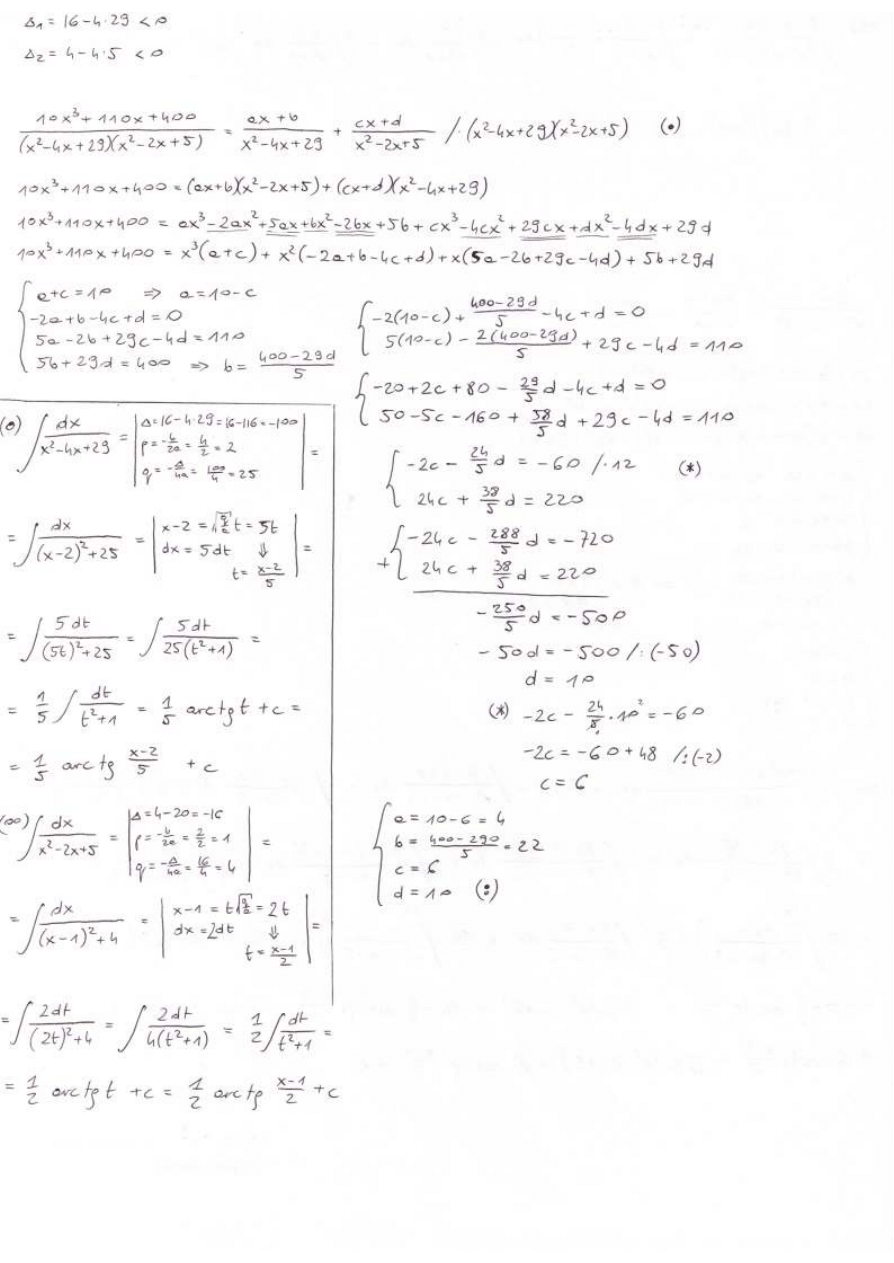 Δ₁ = 16-4·29 < 0
Δ₂ = 4-4·5 < 0
\frac{10x³+110x+400}{(x²-4x+29)(x²-2x+5)} = \frac{ax+b}{x²-4x+29} + \frac{cx+d}{x²-2x+5} /·(x²-4x+29)(x²-2x+5) (•)
10x³+110x+400 = (ax+b)(x²-2x+5)+(cx+d)(x²-4x+29)
10x³+110x+400 = ax³-2ax²+5ax+bx²-2bx+5b+cx³-4cx²+29cx+dx²-4dx+29d
10x³+110x+400 = x³(a+c)+x²(-2a+b-4c+d)+x(5a-2b+29c-4d)+5b+29d
a+c=10 ⇒ a=10-c
-2a+b-4c+d=0
5a-2b+29c-4d=110
5b+29d=400 ⇒ b=\frac{400-29d}{5}
-2(10-c)+\frac{400-29d}{5}-4c+d=0
5(10-c)-\frac{2(400-29d)}{5}+29c-4d=110
-20+2c+80-\frac{29}{5}d-4c+d=0
50-5c-160+\frac{58}{5}d+29c-4d=110
-2c-\frac{24}{5}d=-60 /·12 (*)
24c+\frac{38}{5}d=220
+ -24c-\frac{288}{5}d=-720
24c+\frac{38}{5}d=220
-\frac{250}{5}d=-500
-50d=-500 /:(-50)
d=10
(*) -2c-\frac{24}{5}·10²=-60
-2c=-60+48 /:(-2)
c=6
a=10-6=4
b=\frac{400-290}{5}=22
c=6
d=10 (:)
(o) ∫\frac{dx}{x²-4x+29} = |Δ=16-4·29=16-116=-100
p=\frac{-b}{2a}=\frac{4}{2}=2
q=\frac{-Δ}{4a}=\frac{100}{4}=25| =
= ∫\frac{dx}{(x-2)²+25} = |x-2=\sqrt{\frac{q}{a}}t=5t
dx=5dt ⇓
t=\frac{x-2}{5}| =
= ∫\frac{5dt}{(5t)²+25} = ∫\frac{5dt}{25(t²+1)} =
= \frac{1}{5}∫\frac{dt}{t²+1} = \frac{1}{5} arctg t +c =
= \frac{1}{5} arctg \frac{x-2}{5} +c
(oo) ∫\frac{dx}{x²-2x+5} = |Δ=4-20=-16
p=\frac{-b}{2a}=\frac{2}{2}=1
q=\frac{-Δ}{4a}=\frac{16}{4}=4| =
= ∫\frac{dx}{(x-1)²+4} = |x-1=t\sqrt{\frac{q}{a}}=2t
dx=2dt ⇓
t=\frac{x-1}{2}| =
= ∫\frac{2dt}{(2t)²+4} = ∫\frac{2dt}{4(t²+1)} = \frac{1}{2}∫\frac{dt}{t²+1} =
= \frac{1}{2} arctg t +c = \frac{1}{2} arctg \frac{x-1}{2} +c